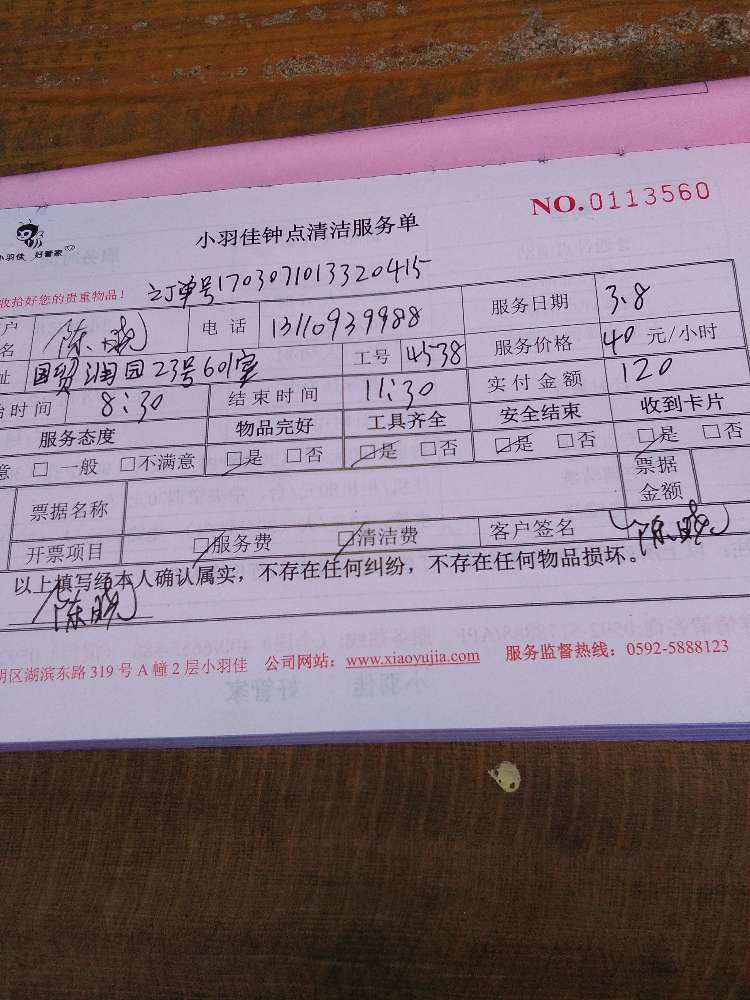 NO.0113560
小羽佳 好管家
小羽佳钟点清洁服务单
收拾好您的贵重物品！ 订单号1703071013320415
户名 陈晓 电话 13110939988 服务日期 3.8
址 国贸润园23号601室 工号 4538 服务价格 40 元/小时
始时间 8:30 结束时间 11:30 实付金额 120
服务态度 物品完好 工具齐全 安全结束 收到卡片
意 □ 一般 □不满意 ☑是 □否 ☑是 □否 ☑是 □否 ☑是 □否
票据名称 票据金额
开票项目 ☑服务费 ☑清洁费 客户签名 陈晓
以上填写经本人确认属实，不存在任何纠纷，不存在任何物品损坏。
陈晓
明区湖滨东路 319 号 A 幢 2 层小羽佳 公司网站：www.xiaoyujia.com 服务监督热线：0592-5888123